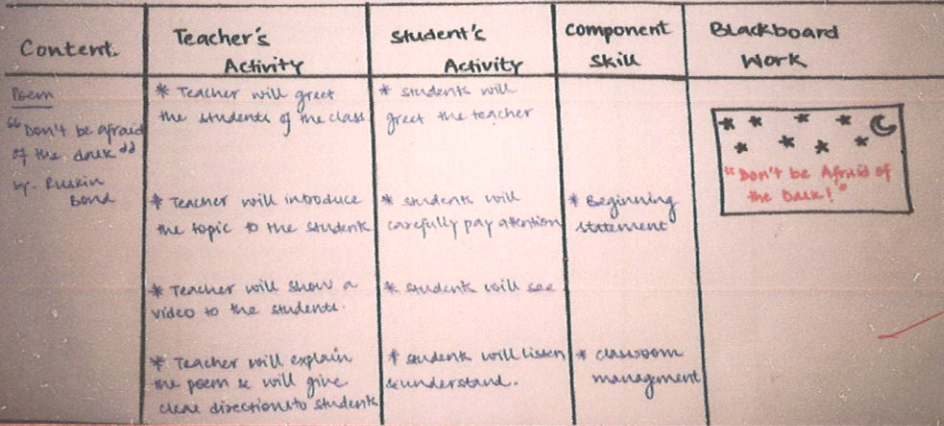 Content.
Teacher's
Activity
Student's
Activity
Component
Skill
Blackboard
Work
Poem
"Don't be afraid
of the dark"
by- Ruskin
Bond
* Teacher will greet
the students of the class
* students will
greet the teacher
* Teacher will introduce
the topic to the students
* students will
carefully pay attention
* Beginning
statement
* Teacher will show a
video to the students.
* students will see
* Teacher will explain
the poem & will give
clear direction to students
* students will listen
& understand.
* classroom
management
"Don't be Afraid of
the Dark!"